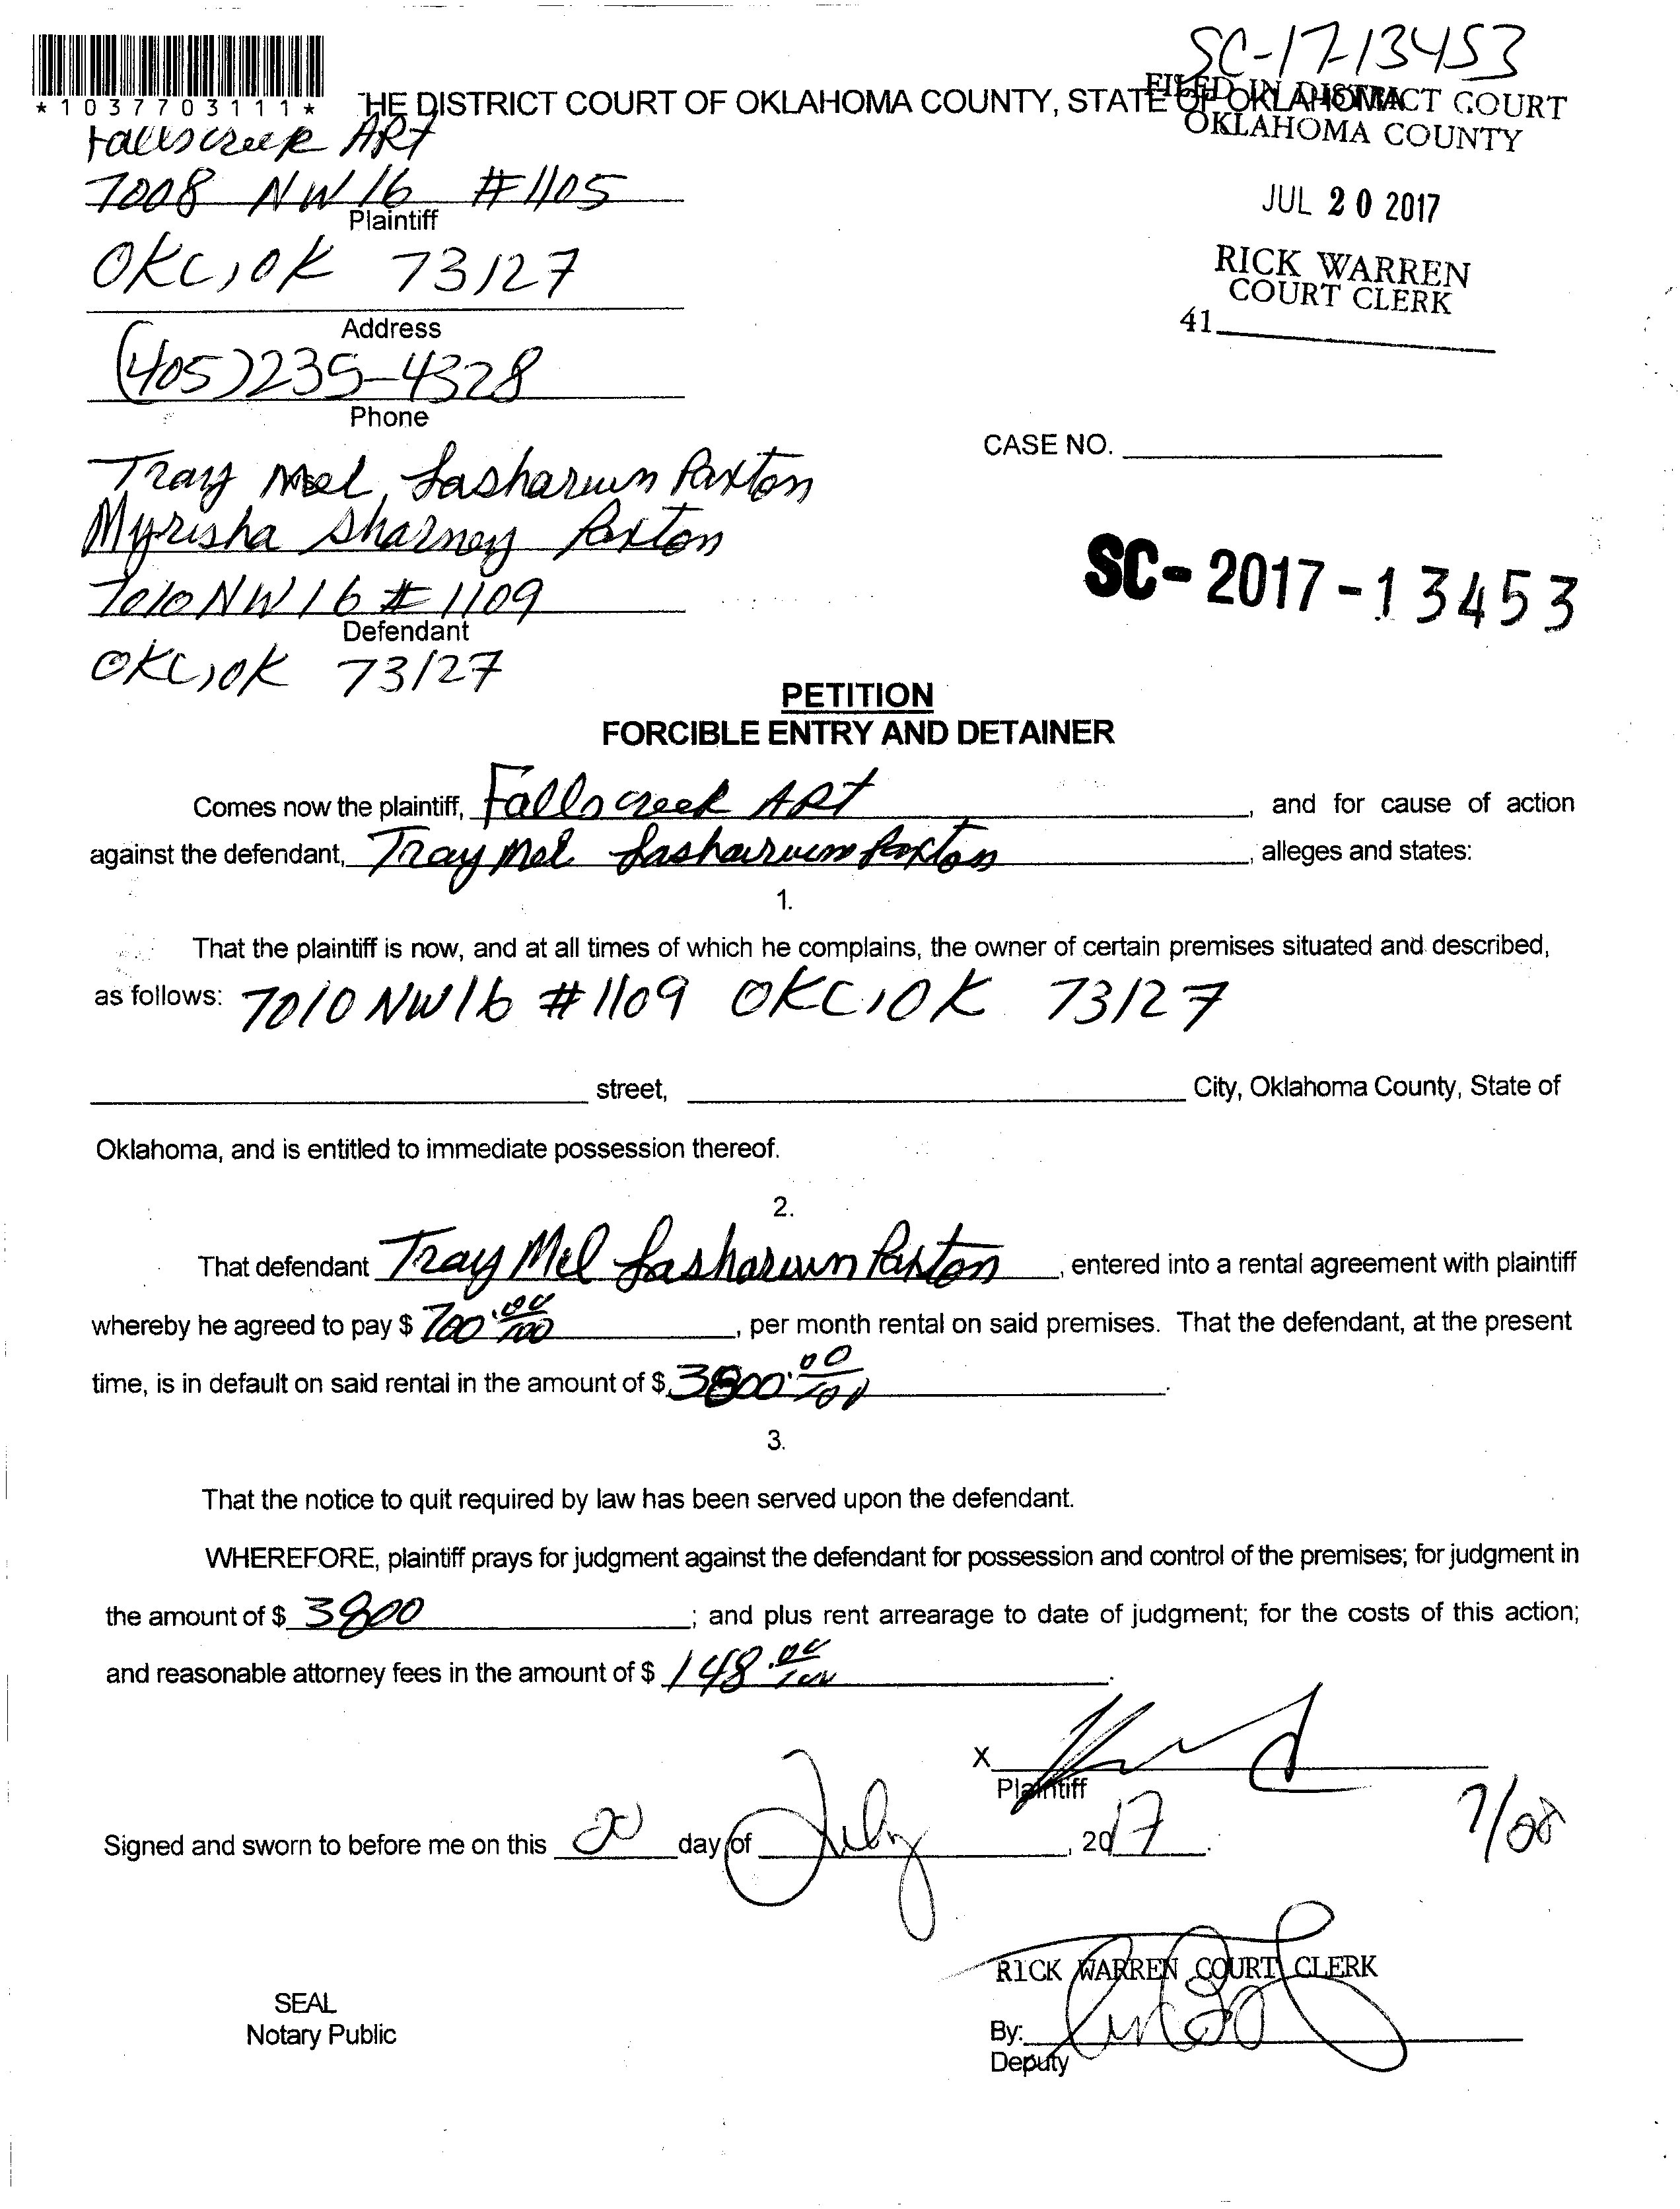 SC-17-13453
*1037703111*
HE DISTRICT COURT OF OKLAHOMA COUNTY, STATE OF OKLAHOMA
FILED IN DISTRICT COURT
OKLAHOMA COUNTY
JUL 20 2017
RICK WARREN
COURT CLERK
41
Fallscreek ART
7008 NW 16 #1105
Plaintiff
OKC, OK 73127
Address
(405) 235-4328
Phone
CASE NO.
Tray Mel, Lasharwn Paxton
Myrisha Sharney Paxton
7010 NW 16 # 1109
Defendant
OKC, OK 73127
SC-2017-13453
PETITION
FORCIBLE ENTRY AND DETAINER
Comes now the plaintiff, Fallscreek ART, and for cause of action
against the defendant, Tray Mel Paxton, alleges and states:
1.
That the plaintiff is now, and at all times of which he complains, the owner of certain premises situated and described,
as follows: 7010 NW 16 #1109 OKC, OK 73127
street, City, Oklahoma County, State of
Oklahoma, and is entitled to immediate possession thereof.
2.
That defendant Tray Mel Paxton, entered into a rental agreement with plaintiff
whereby he agreed to pay $ 700.00/100, per month rental on said premises. That the defendant, at the present
time, is in default on said rental in the amount of $ 3800.00/100.
3.
That the notice to quit required by law has been served upon the defendant.
WHEREFORE, plaintiff prays for judgment against the defendant for possession and control of the premises; for judgment in
the amount of $ 3800; and plus rent arrearage to date of judgment; for the costs of this action;
and reasonable attorney fees in the amount of $ 148.00/100.
X
Plaintiff
Signed and sworn to before me on this 20 day of July, 2017.
7/08
RICK WARREN COURT CLERK
SEAL
Notary Public
By:
Deputy